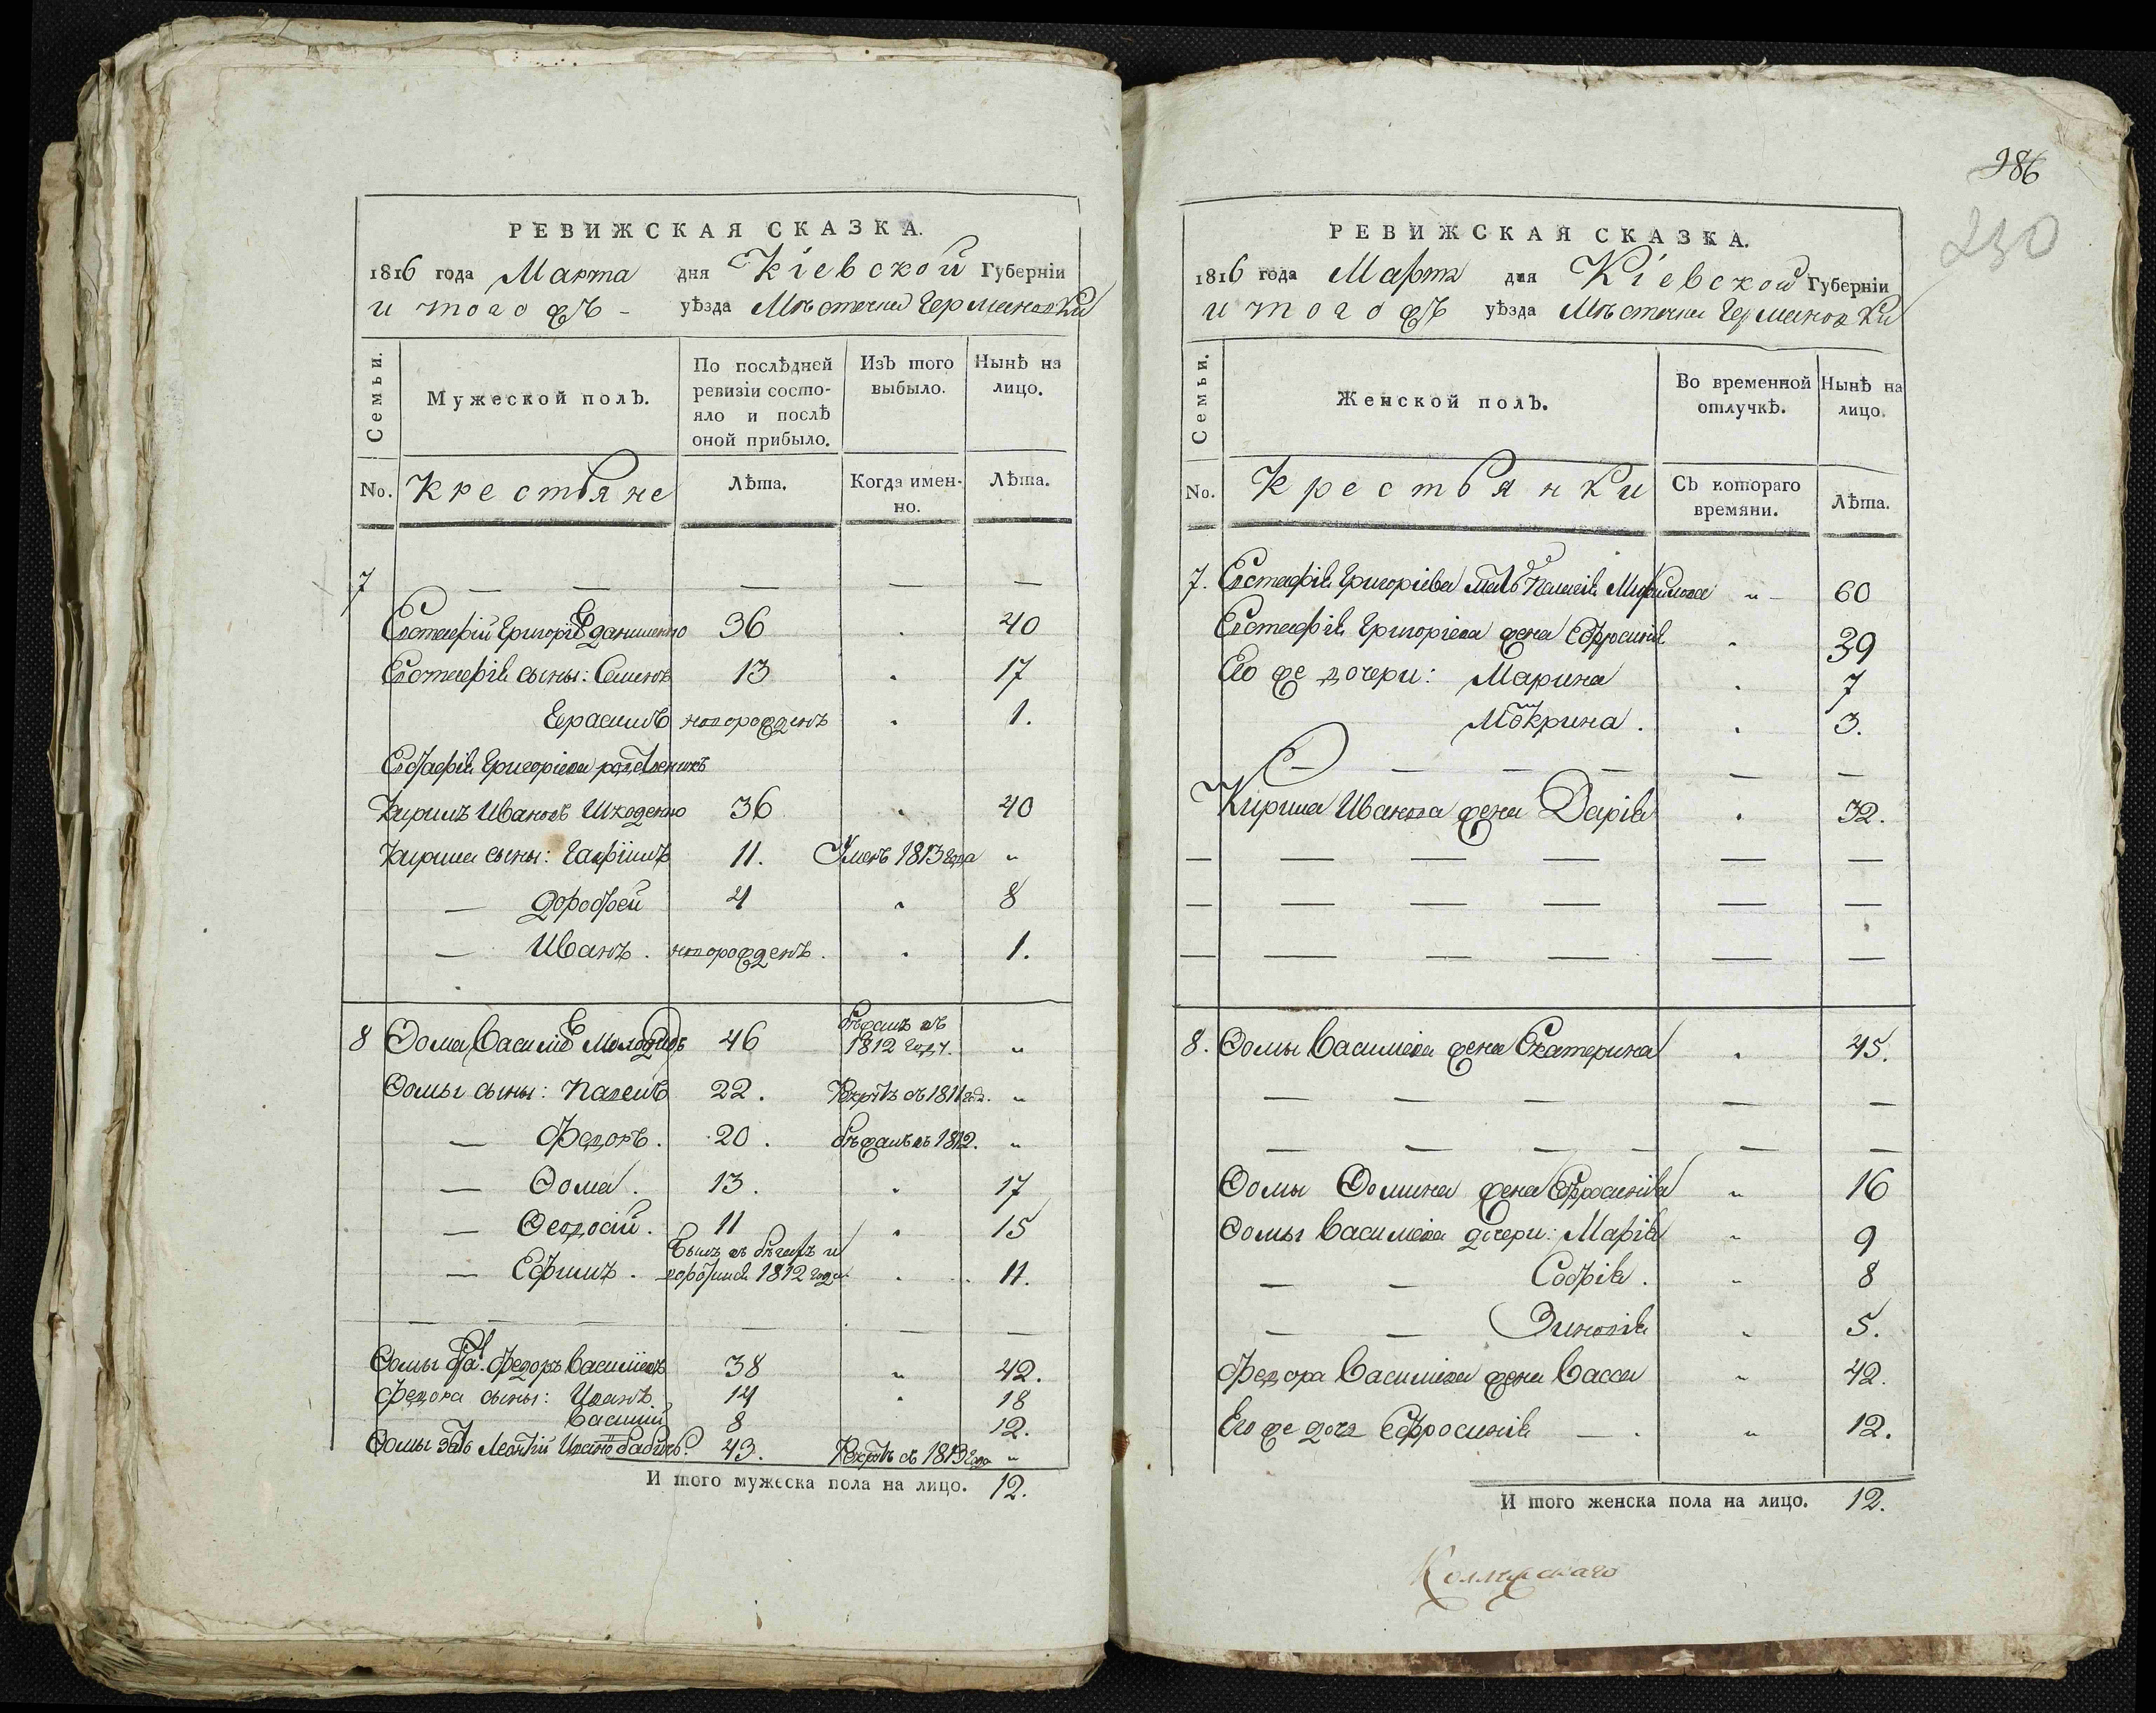 РЕВИЖСКАЯ СКАЗКА.
1816 года Марта дня Кіевской Губерніи
и того жъ - уѣзда Мѣстечка Германовки
Семьи.
Мужеской полъ.
По послѣдней ревизіи состо-
яло и послѣ
оной прибыло.
Изъ того
выбыло.
Нынѣ на
лицо.
No. Крестьяне Лѣта. Когда имен-
но. Лѣта.
7
Евстафій Григоріевъ 36 40
Евстафія сыны: Семенъ 13 17
Герасимъ новорожденъ 1.
Евстафія Григоріева родственникъ
Кирилъ Ивановъ 36 40
Кирила сыны: 11. Умеръ 1813 года "
Дорофей 4 8
Иванъ. новорожденъ. 1.
8 Ѳома Василіевъ 46 бѣжалъ въ
1812 году. "
Ѳомы сыны: Павелъ 22. Рекрутъ съ 1811 года. "
Федоръ. 20. бѣжалъ въ 1812. "
Ѳома. 13. 17
Ѳеодосій. 11 15
Ефимъ. Былъ въ бѣгахъ и
1812 года 11.
Ѳомы братъ Федоръ Василіевъ 38 " 42.
Федора сыны: Иванъ 14 18
Василій 8 12.
Ѳомы зять Леонтій 43. Рекрутъ съ 1813 года "
И того мужеска пола на лицо. 12.
286
230
РЕВИЖСКАЯ СКАЗКА.
1816 года Марта дня Кіевской Губерніи
и того жъ уѣзда Мѣстечка Германовки
Семьи.
Женской полъ.
Во временной
отлучкѣ.
Нынѣ на
лицо.
No. Крестьянки Съ котораго
времяни. Лѣта.
7. Евстафія Григоріева мать " 60
Евстафія Григоріева жена Ефросинія 39
Его же дочери: Марина 7
Мокрина. 3.
Кирила Иванова жена Дарія 32.
8. Ѳомы Василіева жена Екатерина 45.
Ѳомы Ѳомина жена Ефросинія " 16
Ѳомы Василіева дочери: Марія " 9
Софія. " 8
Зиновія " 5.
Федора Василіева жена Васса " 42.
Его же дочь Ефросинія " 12.
И того женска пола на лицо. 12.